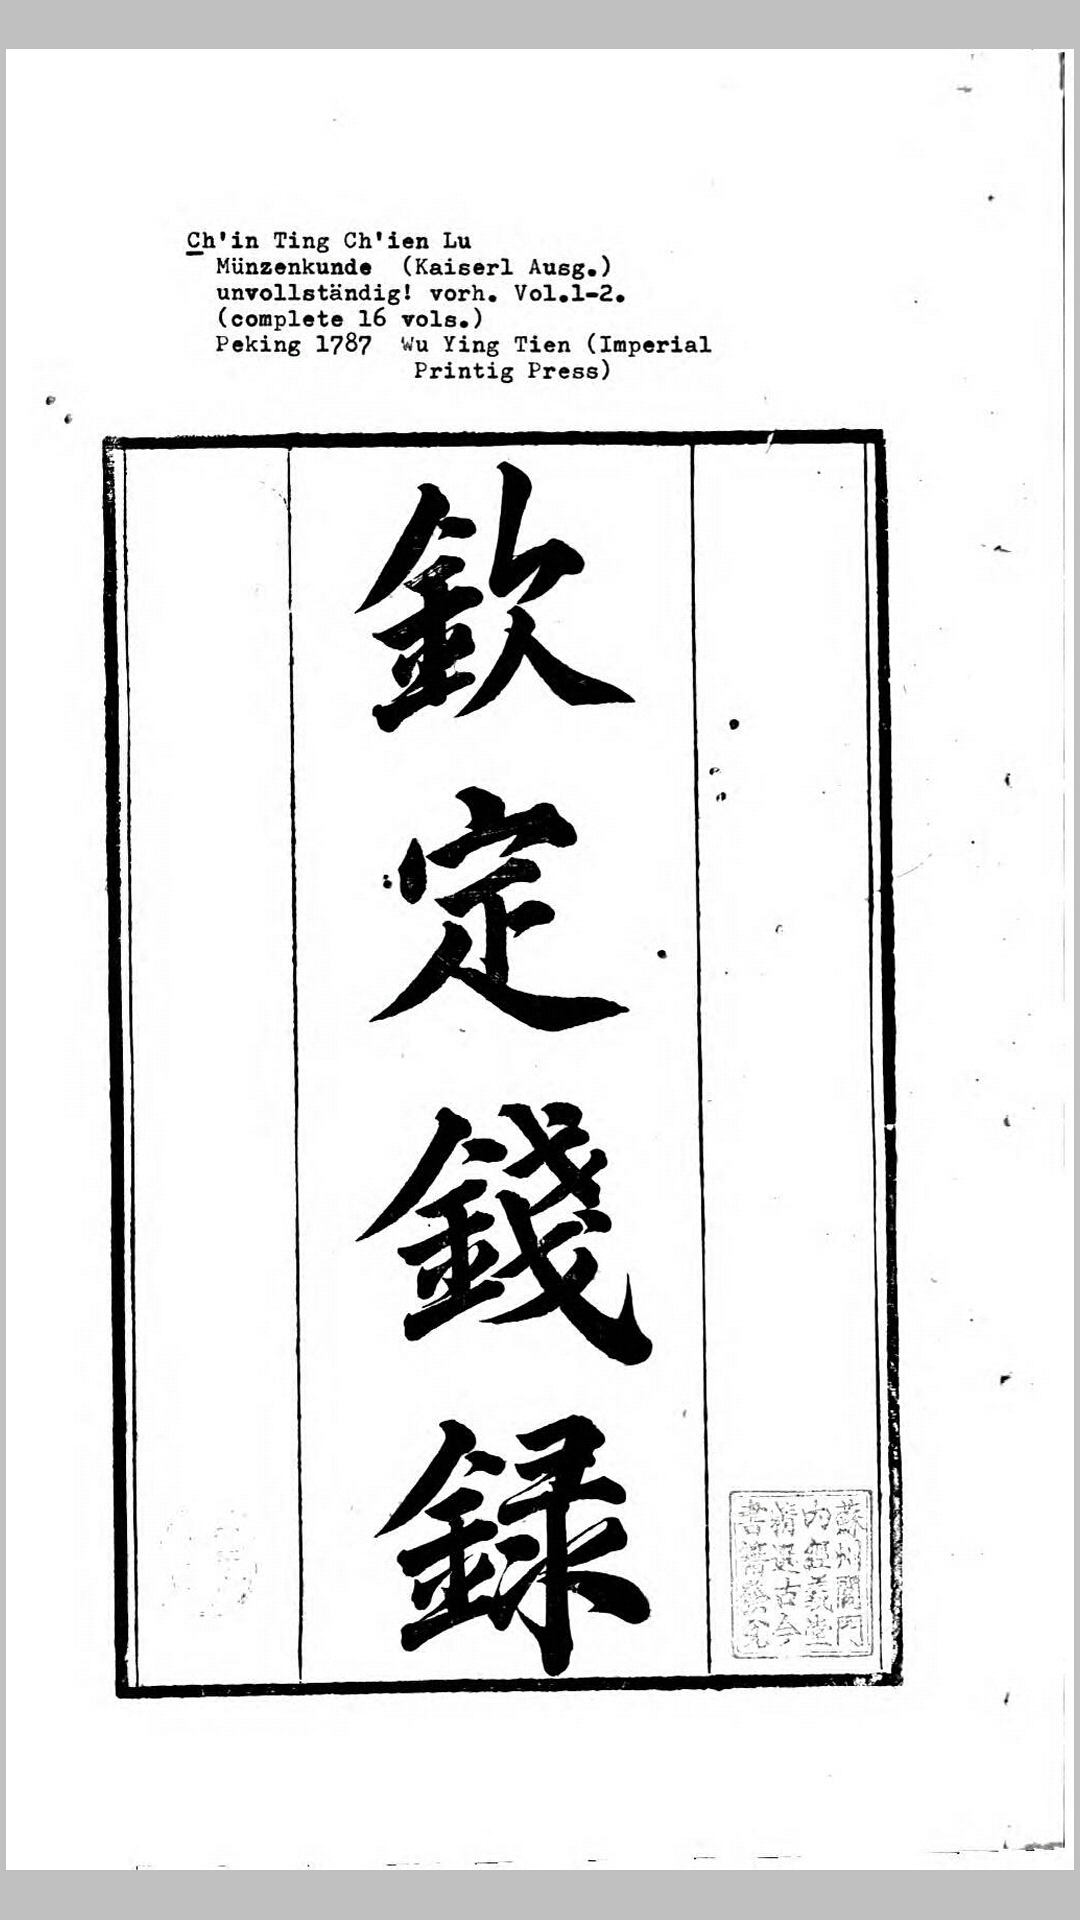 Ch'in Ting Ch'ien Lu
Münzenkunde (Kaiserl Ausg.)
unvollständig! vorh. Vol.1-2.
(complete 16 vols.)
Peking 1787 Wu Ying Tien (Imperial
Printig Press)
欽定錢録
蘇州閶門
内經義堂
精選古今
書籍發兌